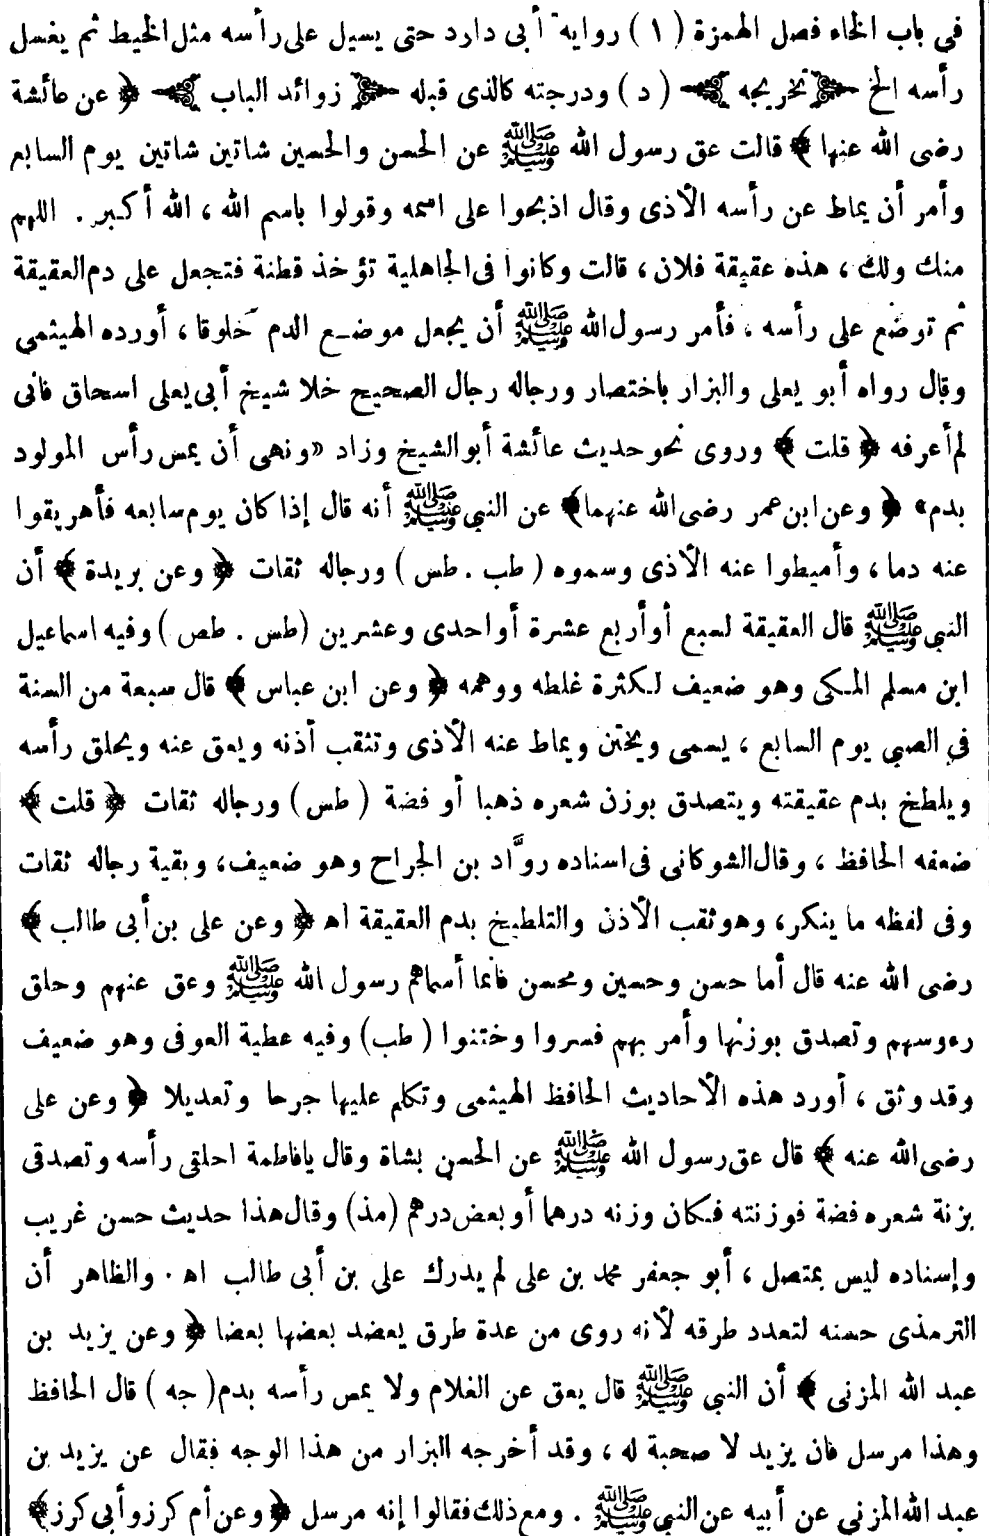 في باب الخاء فصل الهمزة (١) رواية أبى دارد حتى يسيل على رأسه مثل الخيط ثم يغسل
رأسه الخ ﴿ تخريجه ﴾ (د) ودرجته كالذى قبله ﴿ زوائد الباب ﴾ ﴿ عن عائشة
رضى الله عنها ﴾ قالت عق رسول الله ﷺ عن الحسن والحسين شاتين شاتين يوم السابع
وأمر أن يماط عن رأسه الأذى وقال اذبحوا على اسمه وقولوا باسم الله ، الله أكبر . اللهم
منك ولك ، هذه عقيقة فلان ، قالت وكانوا فى الجاهلية تؤخذ قطنة فتجعل على دم العقيقة
ثم توضع على رأسه ، فأمر رسول الله ﷺ أن يجعل موضع الدم خَلوقا ، أورده الهيثمي
وقال رواه أبو يعلى والبزار باختصار ورجاله رجال الصحيح خلا شيخ أبى يعلى اسحاق فانى
لم أعرفه ﴿ قلت ﴾ وروى نحو حديث عائشة أبو الشيخ وزاد «ونهى أن يمس رأس المولود
بدم» ﴿ وعن ابن عمر رضى الله عنهما ﴾ عن النبي ﷺ أنه قال إذا كان يوم سابعه فأهريقوا
عنه دما ، وأميطوا عنه الأذى وسموه (طب . طس) ورجاله ثقات ﴿ وعن بريدة ﴾ أن
النبي ﷺ قال العقيقة لسبع أو أربع عشرة أو احدى وعشرين (طس . طص) وفيه اسماعيل
ابن مسلم المكى وهو ضعيف لكثرة غلطه ووهمه ﴿ وعن ابن عباس ﴾ قال سبعة من السنة
في الصبي يوم السابع ، يسمى ويختن ويماط عنه الأذى وتثقب أذنه ويعق عنه ويحلق رأسه
ويلطخ بدم عقيقته ويتصدق بوزن شعره ذهبا أو فضة (طس) ورجاله ثقات ﴿ قلت ﴾
ضعفه الحافظ ، وقال الشوكانى فى اسناده روَّاد بن الجراح وهو ضعيف، وبقية رجاله ثقات
وفى لفظه ما ينكر، وهو ثقب الأذن والتلطيخ بدم العقيقة اه ﴿ وعن على بن أبى طالب ﴾
رضى الله عنه قال أما حسن وحسين ومحسن فانما أسماهم رسول الله ﷺ وعق عنهم وحلق
رءوسهم وتصدق بوزنها وأمر بهم فسروا وختنوا (طب) وفيه عطية العوفى وهو ضعيف
وقد وثق ، أورد هذه الأحاديث الحافظ الهيثمى وتكلم عليها جرحا وتعديلا ﴿ وعن على
رضى الله عنه ﴾ قال عق رسول الله ﷺ عن الحسن بشاة وقال يافاطمة احلقى رأسه وتصدقى
بزنة شعره فضة فوزنته فكان وزنه درهما أو بعض درهم (مذ) وقال هذا حديث حسن غريب
وإسناده ليس بمتصل ، أبو جعفر محمد بن على لم يدرك على بن أبى طالب اه . والظاهر أن
الترمذى حسنه لتعدد طرقه لأنه روى من عدة طرق يعضد بعضها بعضا ﴿ وعن يزيد بن
عبد الله المزنى ﴾ أن النبي ﷺ قال يعق عن الغلام ولا يمس رأسه بدم (جه) قال الحافظ
وهذا مرسل فان يزيد لا صحبة له ، وقد أخرجه البزار من هذا الوجه فقال عن يزيد بن
عبد الله المزنى عن أبيه عن النبي ﷺ . ومع ذلك فقالوا إنه مرسل ﴿ وعن أم كرز وأبى كرز ﴾